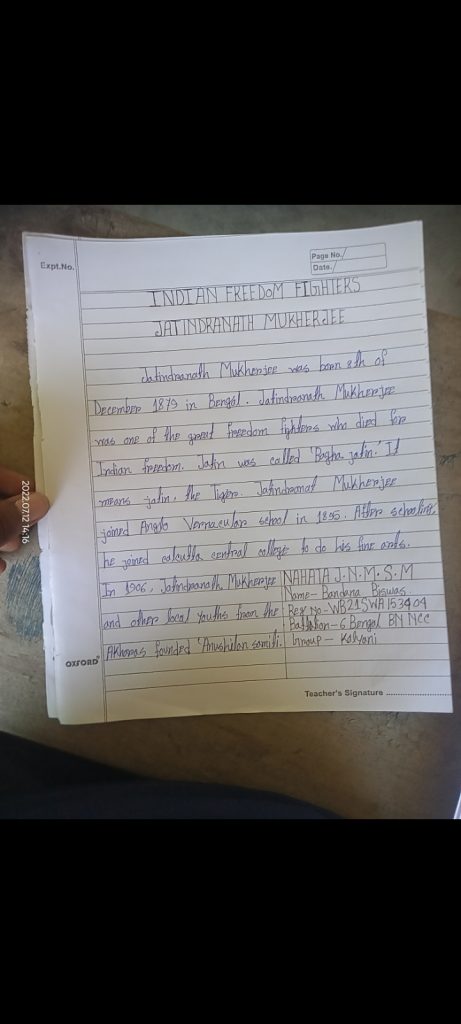 Expt.No.
Page No.
Date.
INDIAN FREEDOM FIGHTERS
JATINDRANATH MUKHERJEE
Jatindranath Mukherjee was born 8th of
December 1879 in Bengal. Jatindranath Mukherjee
was one of the great freedom fighters who died for
Indian freedom. Jatin was called 'Bagha jatin.' It
means jatin, the Tiger. Jatindranat Mukherjee
joined Anglo Vernacular school in 1895. After schooling,
he joined calcutta central college to do his fine arts.
In 1906, Jatindranath Mukherjee
and other local youths from the
Akhoras founded 'Anushilan samiti.
NAHATA J.N.M.S.M
Name- Bandana Biswas
Reg No-WB21SWA153404
Battalion-6 Bengal BN NCC
Group - Kalyani
OXFORD
Teacher's Signature
2022.07.12 14:16